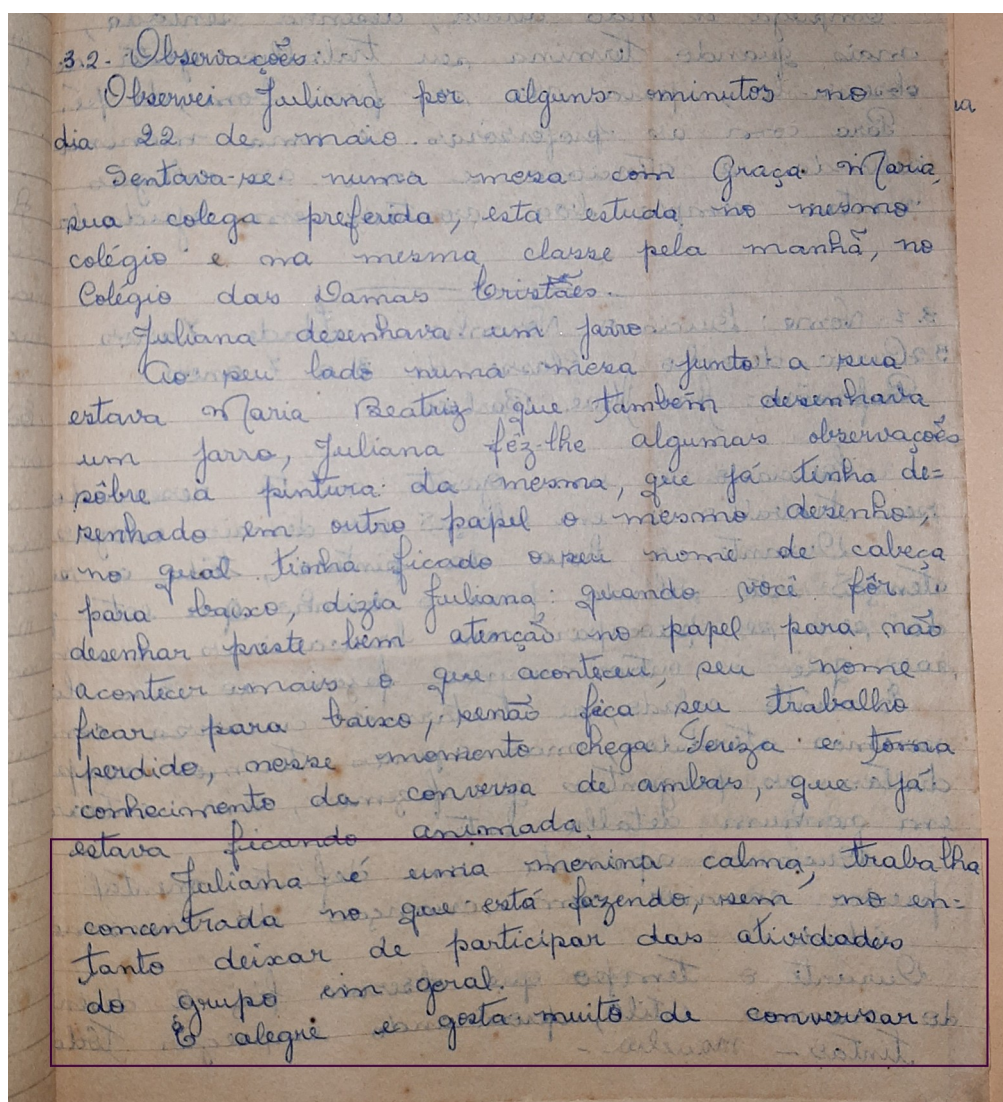 3.2- Observações:
Observei Juliana por alguns minutos no
dia 22 de maio.
Sentava-se numa mesa com Graça Maria,
sua colega preferida, esta estuda no mesmo
colégio e na mesma classe pela manhã, no
Colégio das Damas Cristães.
Juliana desenhava um jarro.
Ao seu lado numa mesa junto a sua
estava Maria Beatriz que também desenhava
um jarro, Juliana fêz-lhe algumas observações
sôbre a pintura da mesma, que já tinha de=
senhado em outro papel o mesmo desenho,
no qual tinha ficado o seu nome de cabeça
para baixo, dizia Juliana: quando você fôr
desenhar preste bem atenção no papel para não
acontecer mais o que aconteceu, seu nome
ficar para baixo, senão fica seu trabalho
perdido, nesse momento chega Tereza e toma
conhecimento da conversa de ambas, que já
estava ficando animada.
Juliana é uma menina calma, trabalha
concentrada no que está fazendo, sem no en=
tanto deixar de participar das atividades
do grupo em geral.
É alegre e gosta muito de conversar